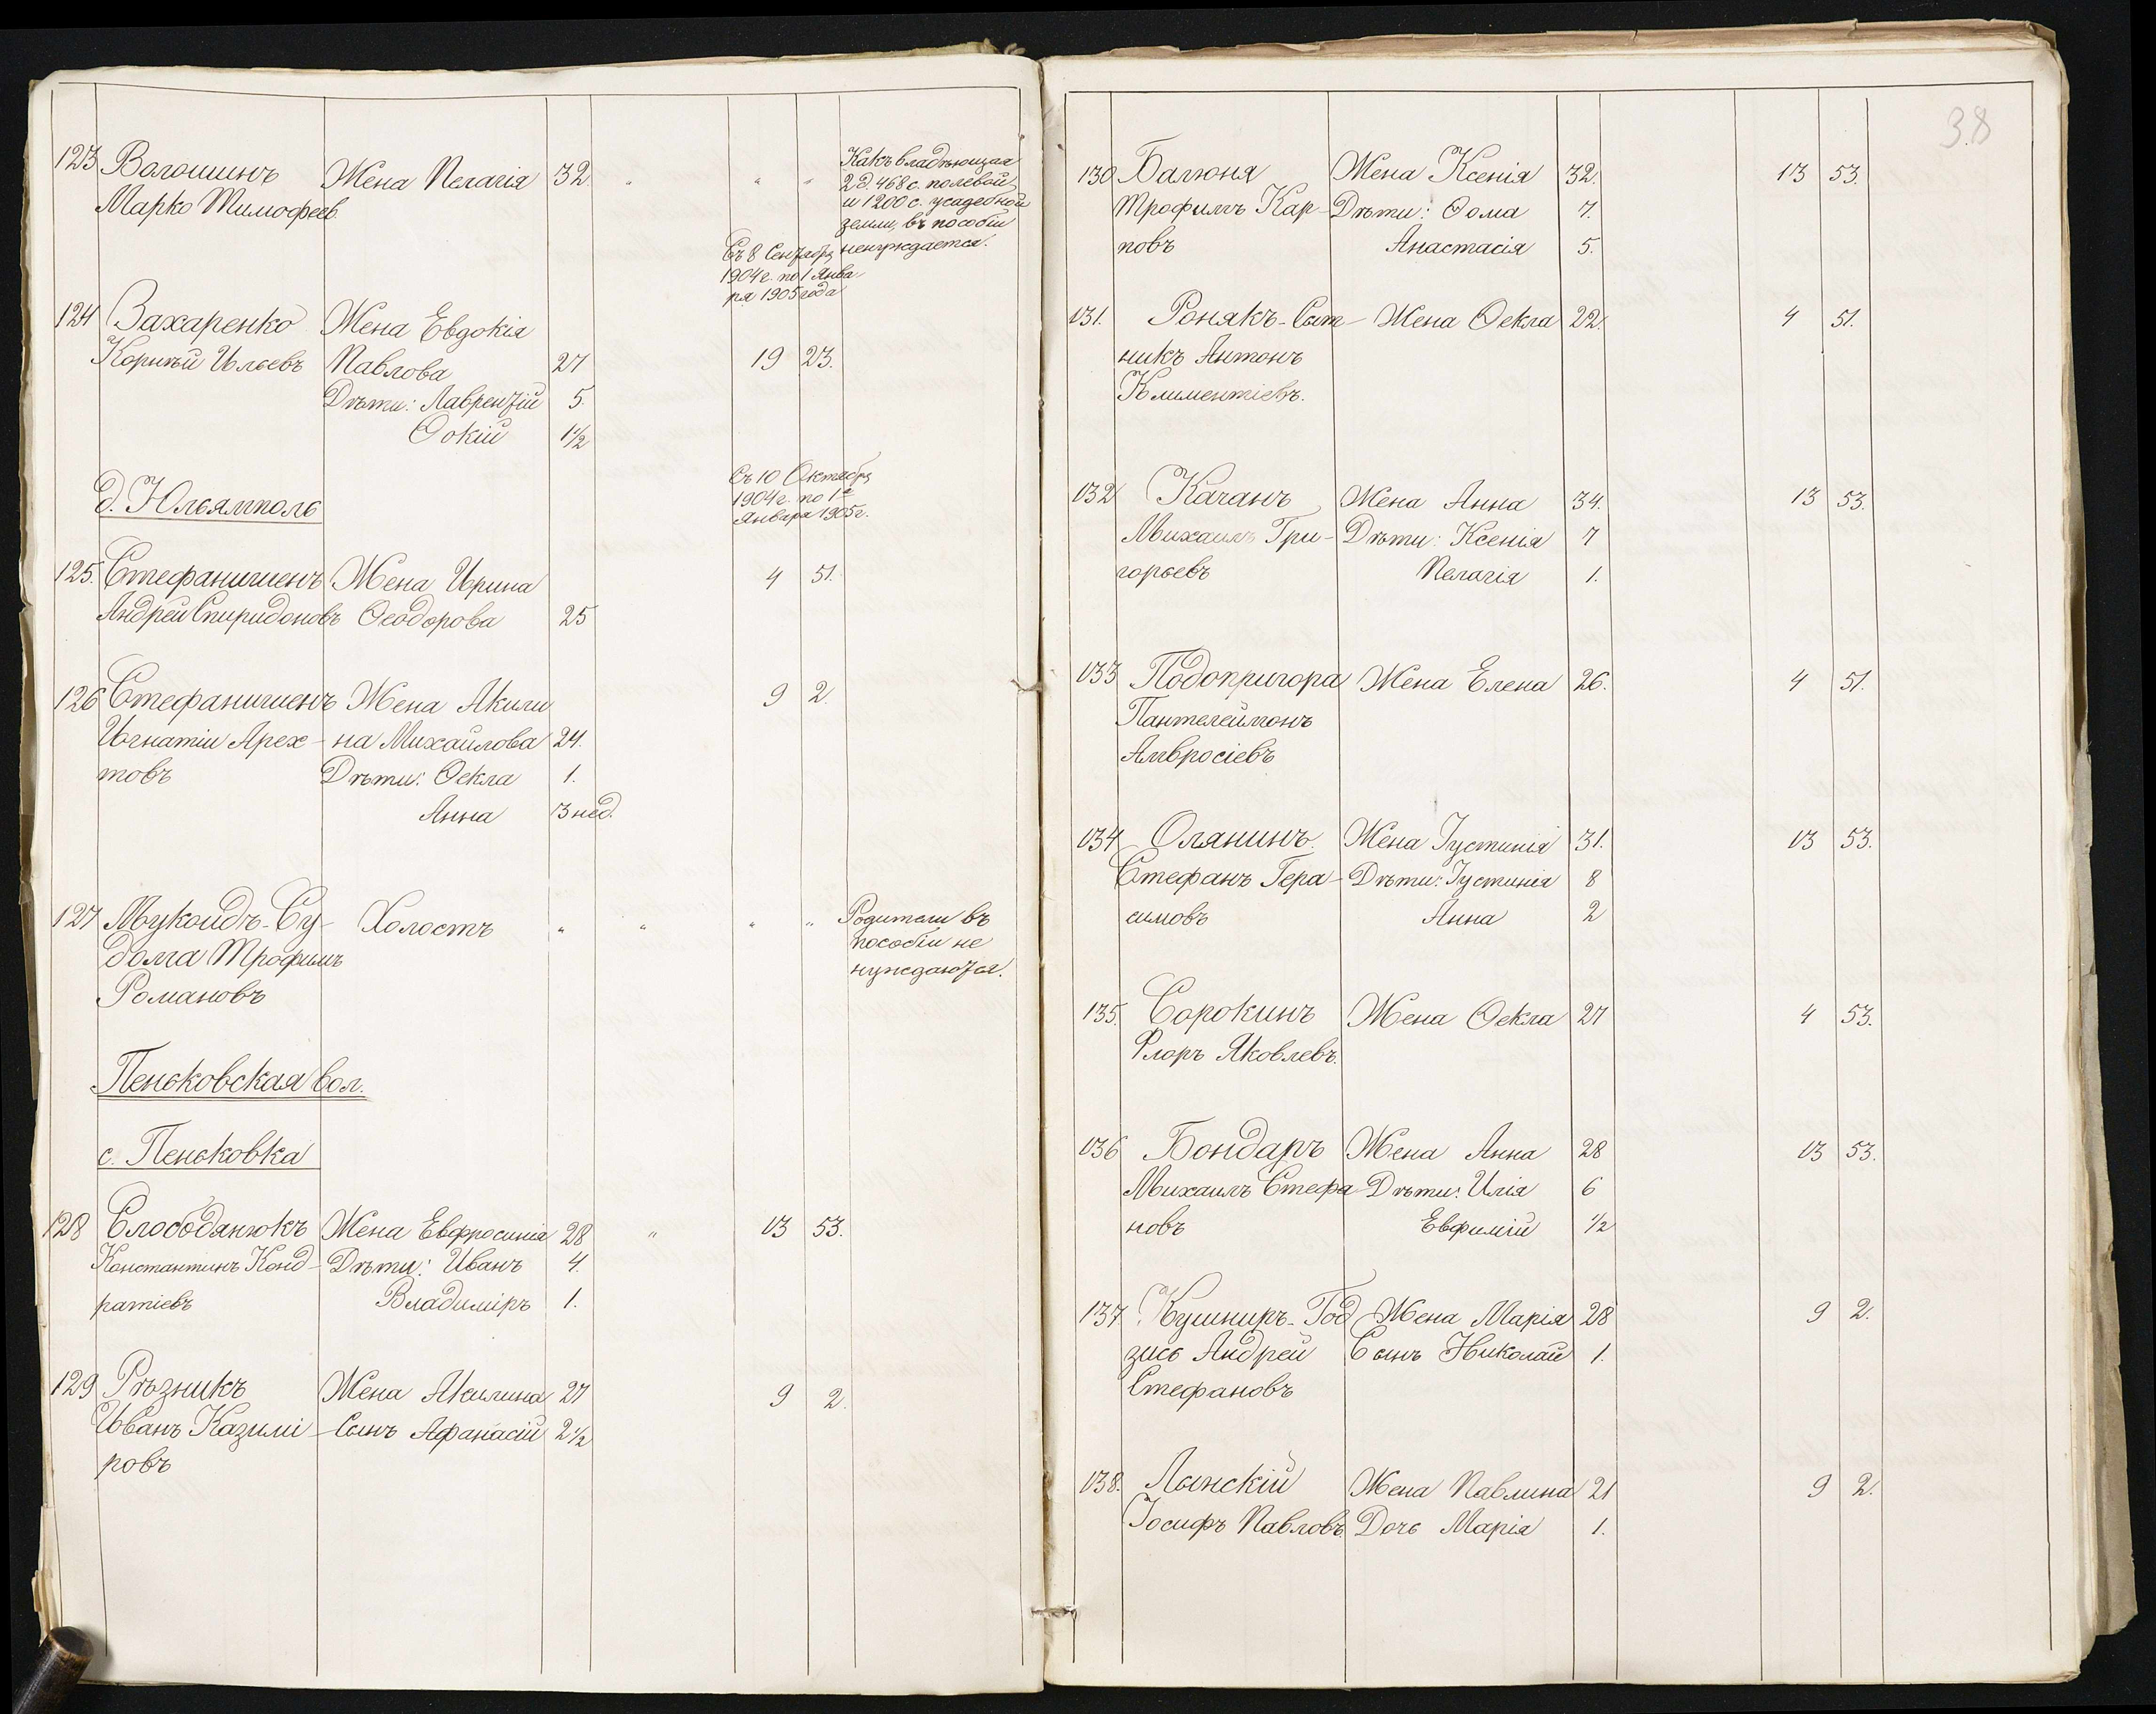 123 Волошинъ Жена Пелагія 32 " " " Какъ владѣющая
Марко Тимофеев 2 д. 468 с. полевой
и 1200 с. усадебной
земли, въ пособіи
ненуждается.
Съ 8 Сентября
1904 г. по 1 Янва-
ря 1905 года
124 Захаренко Жена Евдокія
Корнѣй Ильевъ Павлова 27 19 23.
Дѣти: Лаврентій 5.
Ѳокій 1½
д. Юльямполь
Съ 10 Октября
1904 г. по 1е
Января 1905 г.
125. Стефанишенъ Жена Ирина 4 51.
Андрей Спиридоновъ Ѳеодорова 25
126 Стефанишенъ Жена Акили 9 2.
Игнатій Арех- на Михайлова 24.
товъ Дѣти: Ѳекла 1.
Анна 3 нед.
127 Мукоидъ-Су- Холостъ " " " " Родители въ
дома Трофимъ пособіи не
Романовъ нуждаются.
Пеньковская вол.
с. Пеньковка
128 Слободянюкъ Жена Евфросинія 28 " 13 53.
Константинъ Конд- Дѣти: Иванъ 4.
ратіевъ Владиміръ 1.
129 Рѣзникъ Жена Акилина 27 9 2.
Иванъ Казимі- Сынъ Афанасій 2½
ровъ
38
130 Багюня Жена Ксенія 32. 13 53.
Трофимъ Кар- Дѣти: Ѳома 7.
повъ Анастасія 5.
131. Ронякъ-Сыт- Жена Ѳекла 22. 4 51.
никъ Антонъ
Климентіевъ.
132 Качанъ Жена Анна 34. 13 53.
Михаилъ Гри- Дѣти: Ксенія 7
горьевъ Пелагія 1.
133 Подопригора Жена Елена 26. 4 51.
Пантелеймонъ
Амвросіевъ
134 Олянинъ. Жена Іустинія 31. 13 53.
Стефанъ Гера- Дѣти: Іустинія 8
симовъ Анна 2
135. Сорокинъ Жена Ѳекла 27 4 53.
Флоръ Яковлевъ.
136 Бондарь Жена Анна 28 13 53.
Михаилъ Стефа Дѣти: Илія 6
новъ Евфимій ½
137 Кушниръ-Год Жена Марія 28 9 2.
зись Андрей Сынъ Николай 1.
Стефановъ
138. Лынскій Жена Павлина 21 9 2.
Іосифъ Павловъ. Дочь Марія 1.